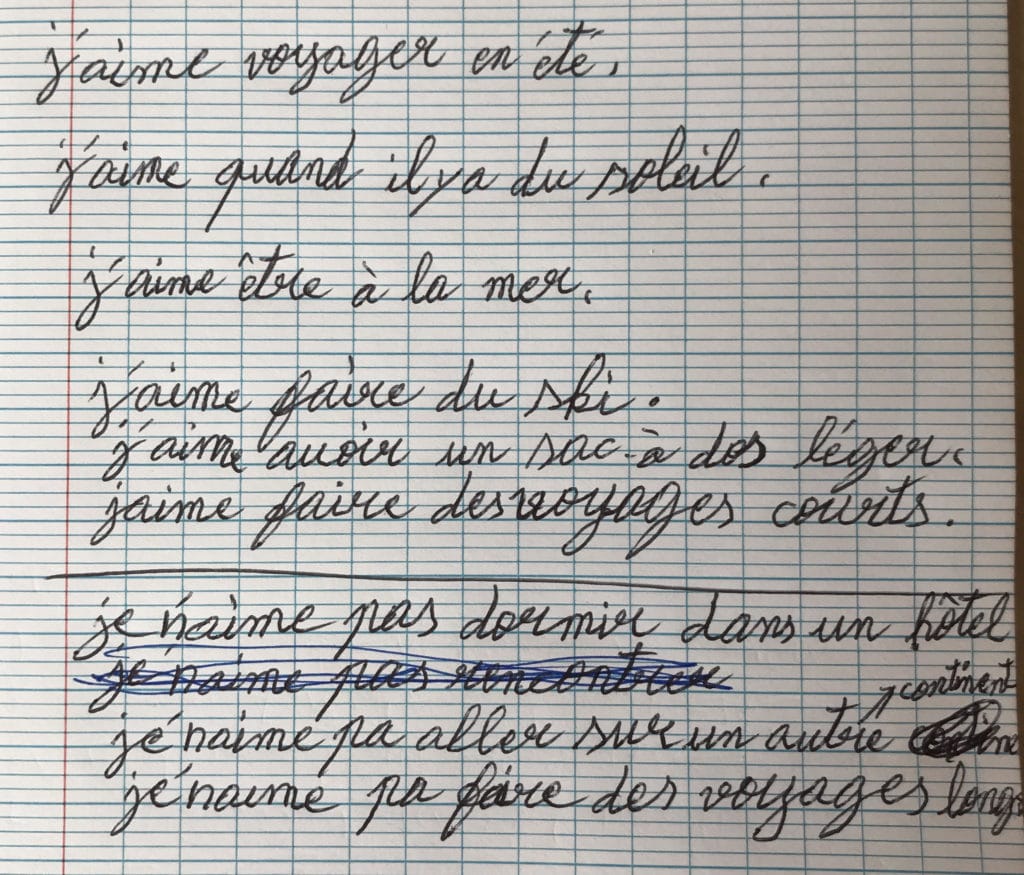 j'aime voyager en été.
j'aime quand il y a du soleil.
j'aime être à la mer.
j'aime faire du ski.
j'aime avoir un sac-à dos léger.
jaime faire des voyages courts.
je n'aime pas dormir dans un hôtel
je n'aime pas rencontrer
continent
je n'aime pa aller sur un autre
je n'aime pa faire des voyages longs